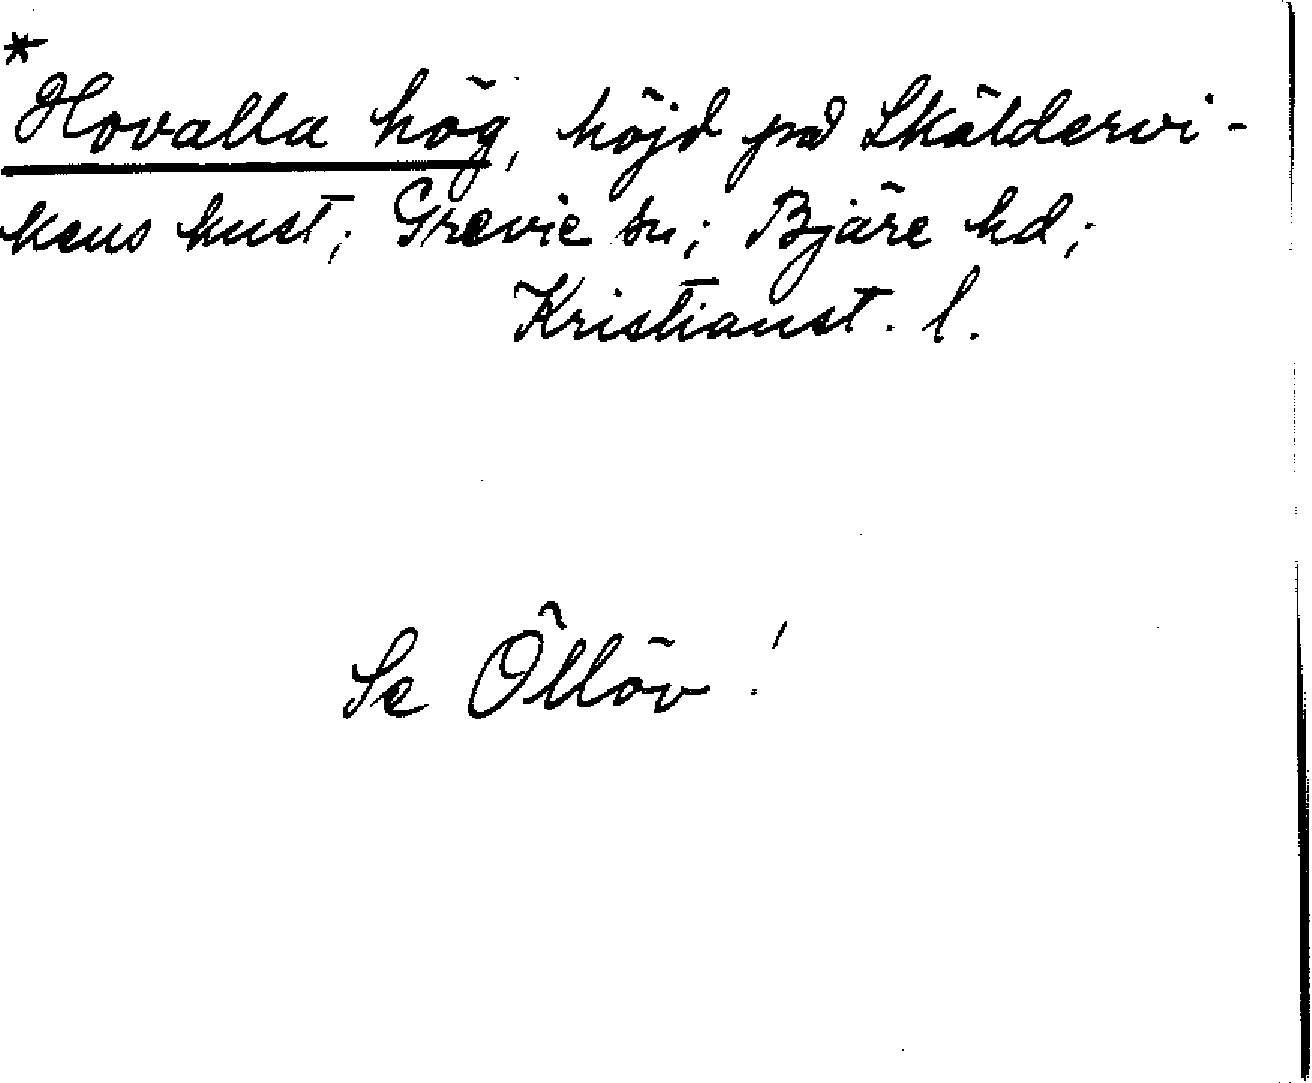 *
Hovalla hög, höjd på Skäldervi-
kens kust; Grevie sn; Bjäre hd;
Kristianst. l.
Se Öllöv!